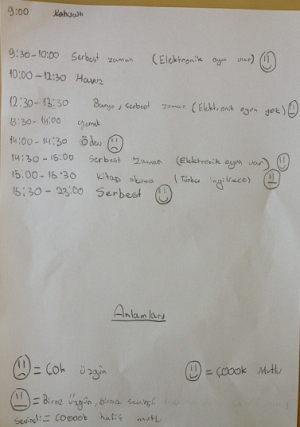 9:00 Kahvaltı
9:30-10:00 Serbest zaman (Elektronik oyun var)
10:00-12:30 Havuz
12:30-13:30 Banyo, serbest zaman (Elektronik oyun yok)
13:30-14:00 yemek
14:00-14:30 Ödev
14:30-15:00 Serbest zaman (Elektronik oyun var)
15:00-15:30 Kitap okuma (Türkçe ingilizce)
15:30-23:00 Serbest
Anlamları
= Çok üzgün
= Çoook mutlu
= Biraz üzgün, biraz sevinçli